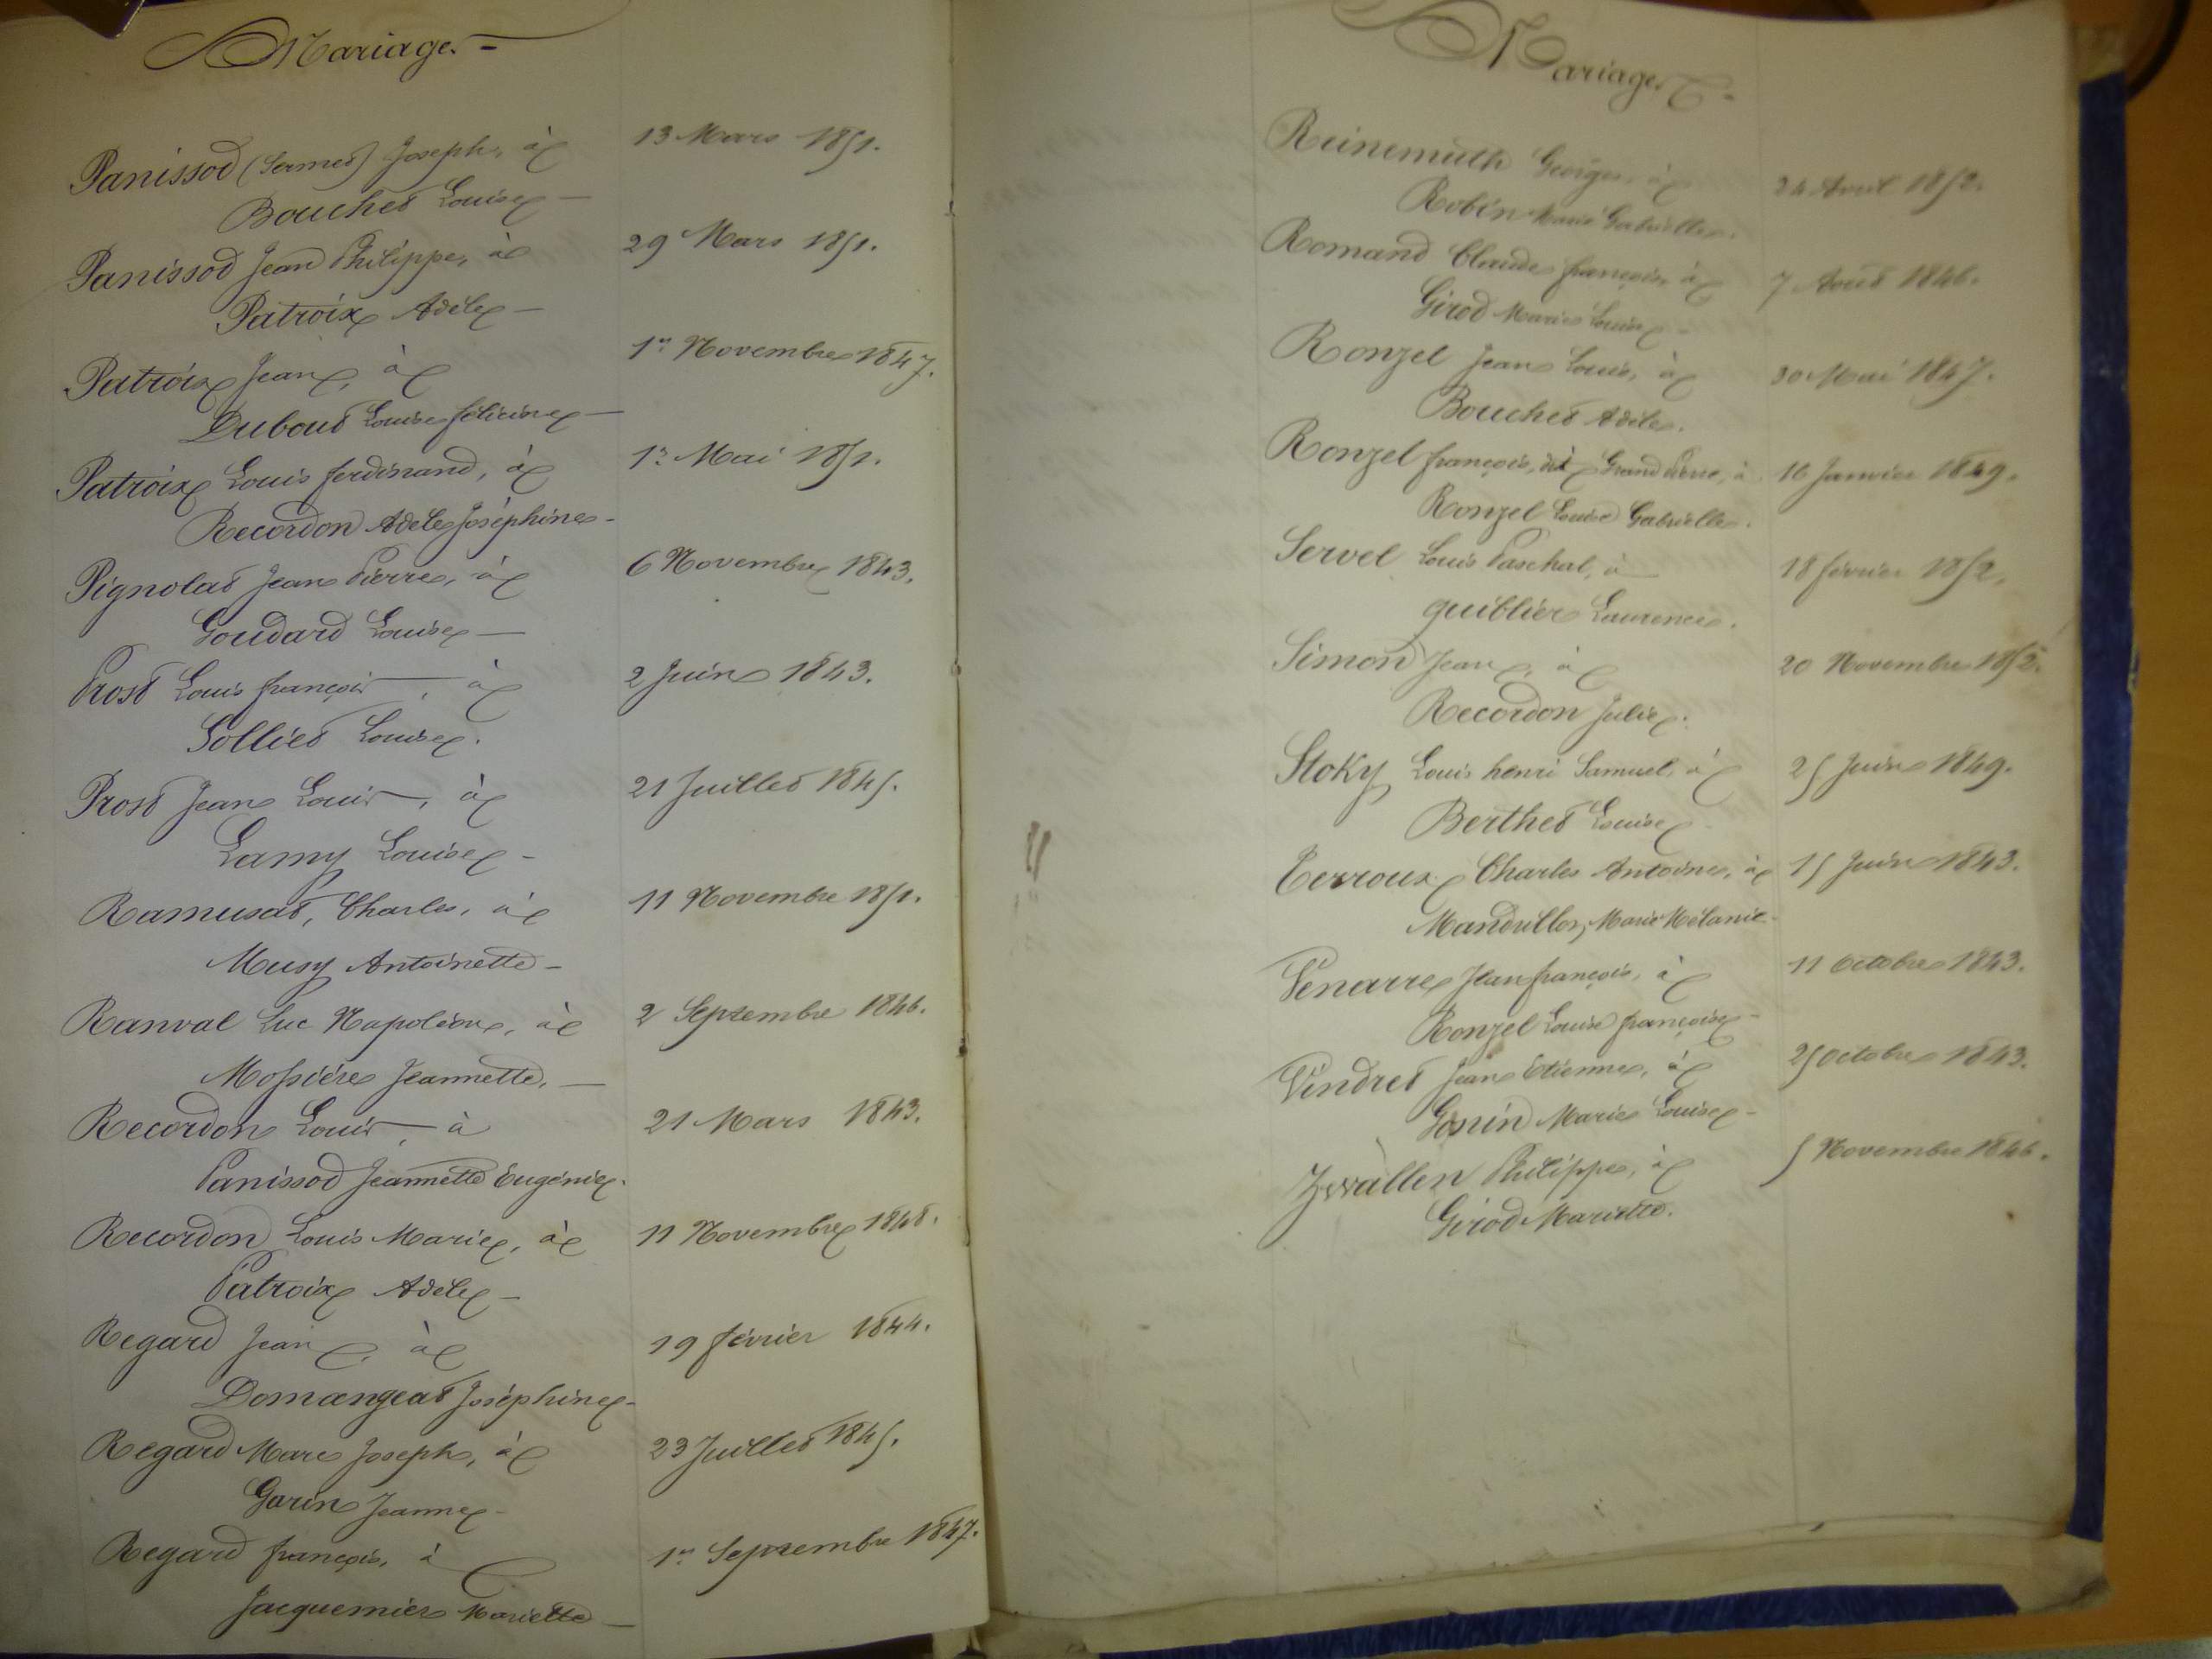 Mariages
Panissod (Sermet) Joseph, à 13 Mars 1851.
Bouchet Louise
Panissod Jean Philippe, à 29 Mars 1851.
Patroix Adèle
Patroix Jean, à 1er Novembre 1847.
Dubout Louise félicine
Patroix Louis ferdinand, à 1er Mai 1851.
Recordon Adèle Joséphine
Pignolat Jean Pierre, à 6 Novembre 1843.
Goudard Louise
Prost Louis françois, à 2 Juin 1843.
Solliet Louise.
Prost Jean Louis, à 21 Juillet 1845.
Lamy Louise
Ramusat, Charles, à 11 Novembre 1851.
Musy Antoinette
Ranval Luc Napoléon, à 2 Septembre 1846.
Mossière Jeannette.
Recordon Louis, à 21 Mars 1843.
Panissod Jeannette Eugénie.
Recordon Louis Marie, à 11 Novembre 1848.
Patroix Adèle
Regard Jean, à 19 février 1844.
Domangeat Joséphine
Regard Marc Joseph, à 23 Juillet 1845.
Garin Jeanne
Regard françois, à 1er Septembre 1847.
Jacquemier Mariette
Mariages
Reinemuth Georges, à 24 Avril 1852.
Robin Marie Gabrielle.
Romand Claude françois, à 7 Août 1846.
Girod Marie Louise
Ronzel Jean Louis, à 30 Mai 1847.
Bouchet Adèle.
Ronzel françois, dit Grand Pierre, à 16 Janvier 1849.
Ronzel Louise Gabrielle.
Servel Louis Paschal, à 18 février 1852.
Guiblier Laurence.
Simon Jean, à 20 Novembre 1852.
Recordon Julie.
Stoky Louis henri Samuel, à 25 Juin 1849.
Berthet Louise
Terroux Charles Antoine, à 15 Juin 1843.
Mandrillon, Marie Mélanie
Venarre Jean françois, à 11 Octobre 1843.
Ronzel Louise françoise
Vindret Jean Etienne, à 25 Octobre 1843.
Gonin Marie Louise
Zwallen Philippe, à 5 Novembre 1846.
Girod Mariette.